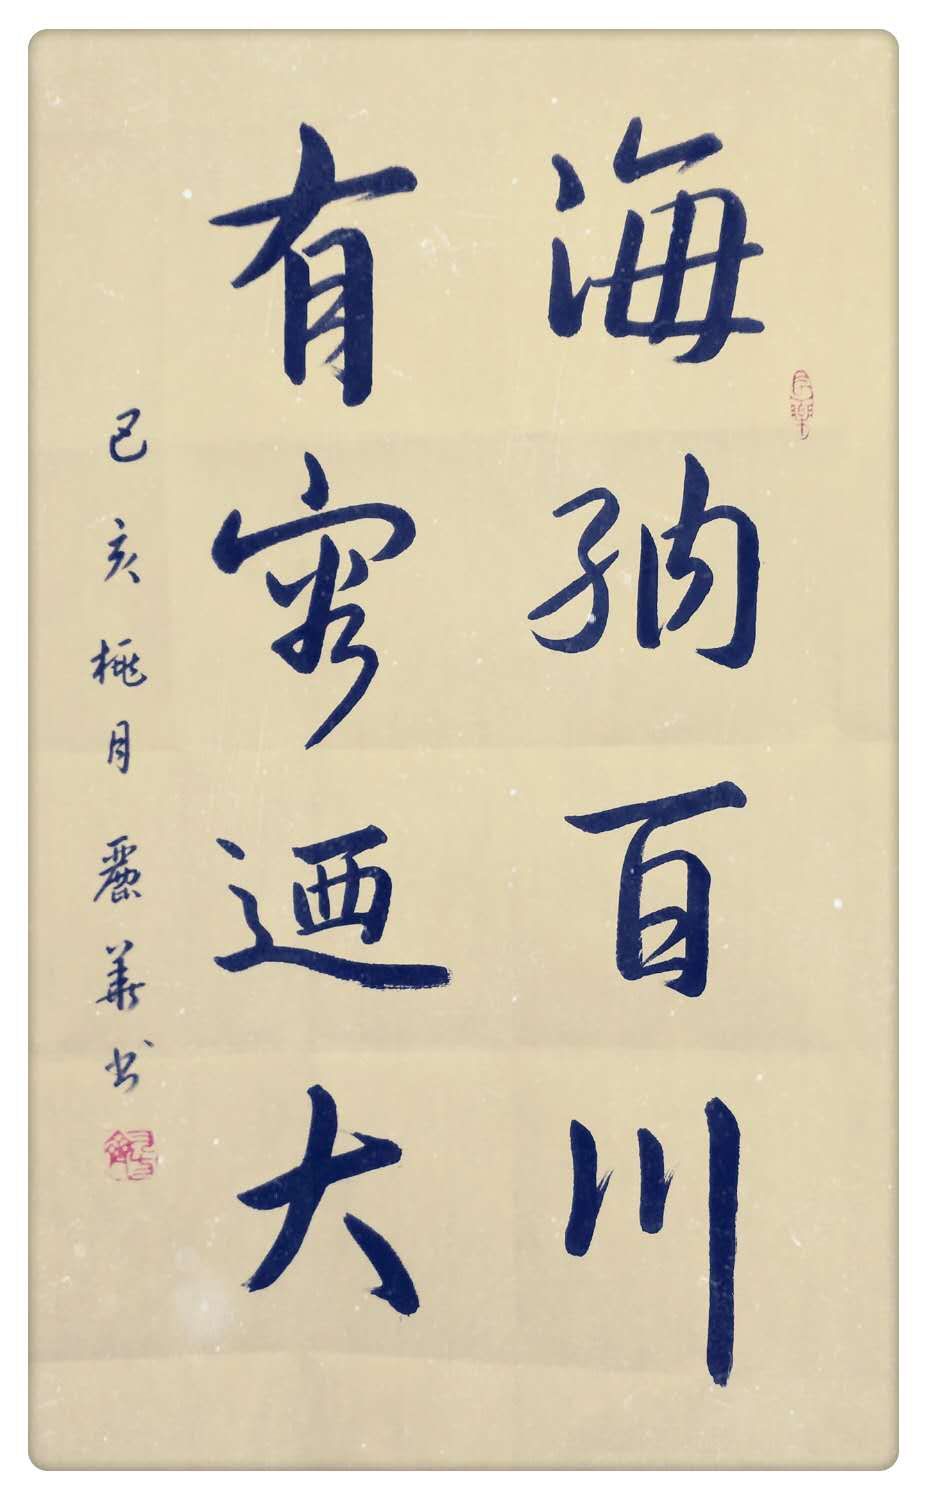 海纳百川
有容迺大
己亥桃月麗華书